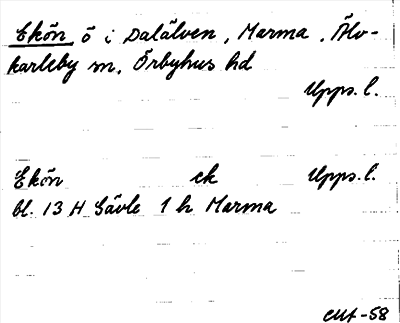 Ekön ö i Dalälven, Marma, Älv-
karleby sn, Örbyhus hd
Upps. l.
Ekön ek Upps. l.
bl. 13 H Gävle 1 h Marma